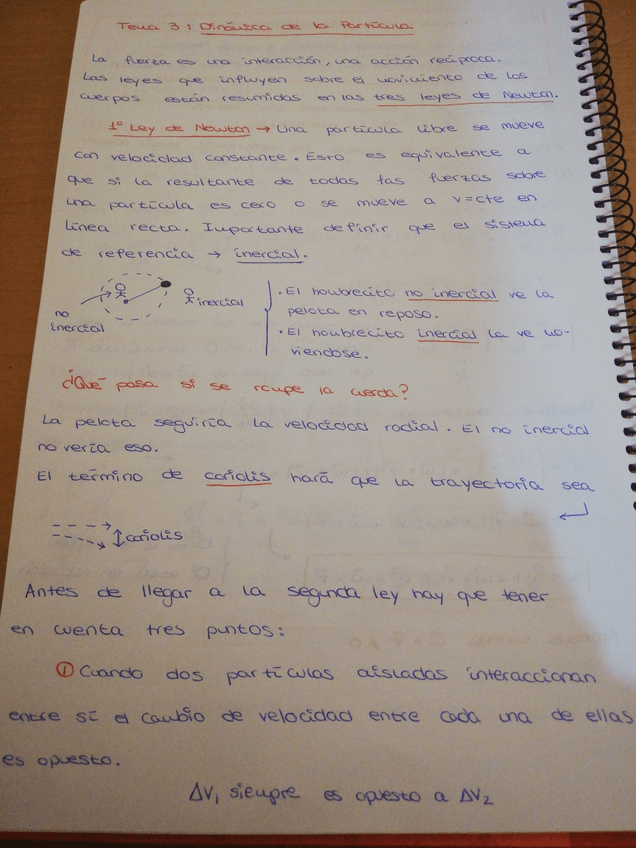 Tema 3: Dinámica de la Partícula
La fuerza es una interacción, una acción recíproca.
Las leyes que influyen sobre el movimiento de los
cuerpos están resumidas en las tres leyes de Newton.
1º Ley de Newton → Una partícula libre se mueve
con velocidad constante. Esto es equivalente a
que si la resultante de todas las fuerzas sobre
una partícula es cero o se mueve a v=cte en
línea recta. Importante definir que el sistema
de referencia → inercial.
no inercial
inercial
· El hombrecito no inercial ve la
pelota en reposo.
· El hombrecito inercial la ve mo-
viendose.
¿Qué pasa si se rompe la cuerda?
La pelota seguiría la velocidad radial. El no inercial
no vería eso.
El término de coriolis hará que la trayectoria sea
coriolis
Antes de llegar a la segunda ley hay que tener
en cuenta tres puntos:
① Cuando dos partículas aisladas interaccionan
entre sí el cambio de velocidad entre cada una de ellas
es opuesto.
ΔV₁ siempre es opuesto a ΔV₂